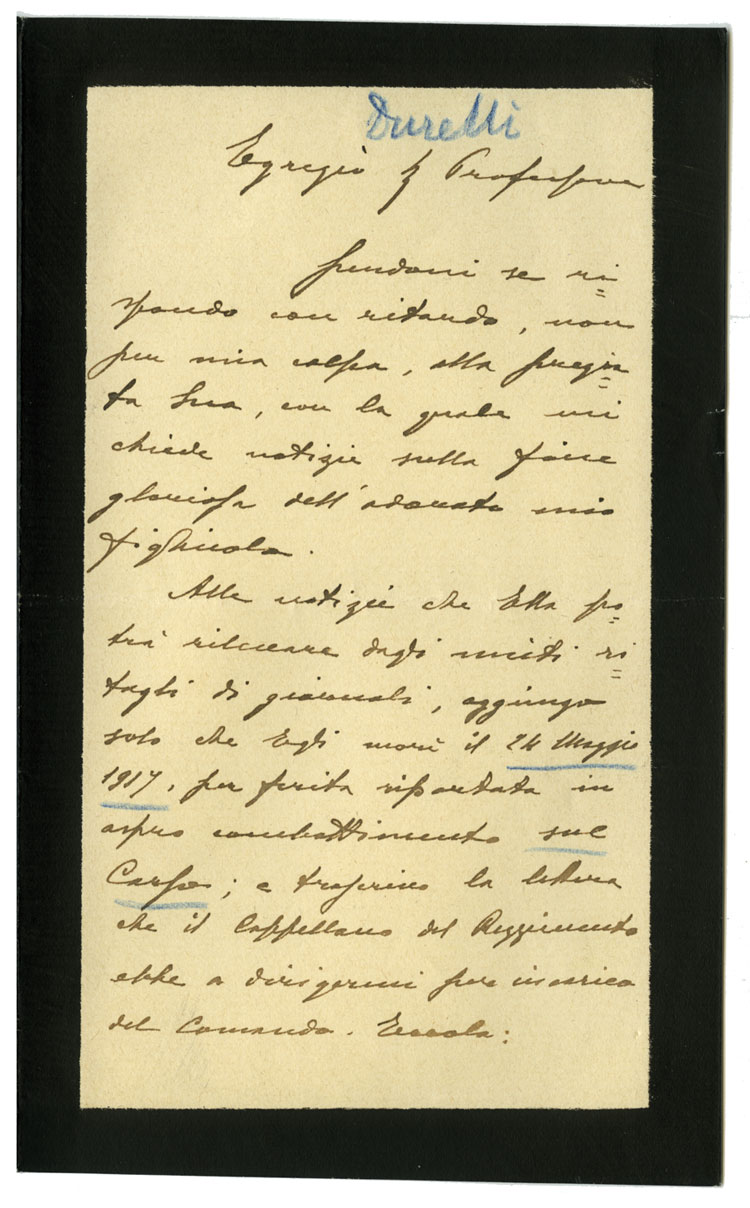 Duretti
Egregio Professore
perdoni se ri=
spondo con ritardo, non
per mia colpa, alla pregia=
ta Sua, con la quale mi
chiede notizie sulla fine
gloriosa dell'adorato mio
figliuolo.
Alle notizie che Ella po=
trà rilevare dagli uniti ri=
tagli di giornali, aggiungo
solo che Egli morì il 24 Maggio
1917, per ferita riportata in
aspro combattimento sul
Carso; e trascrivo la lettera
che il Cappellano del Reggimento
ebbe a dirigermi per incarico
del Comando. Eccola: